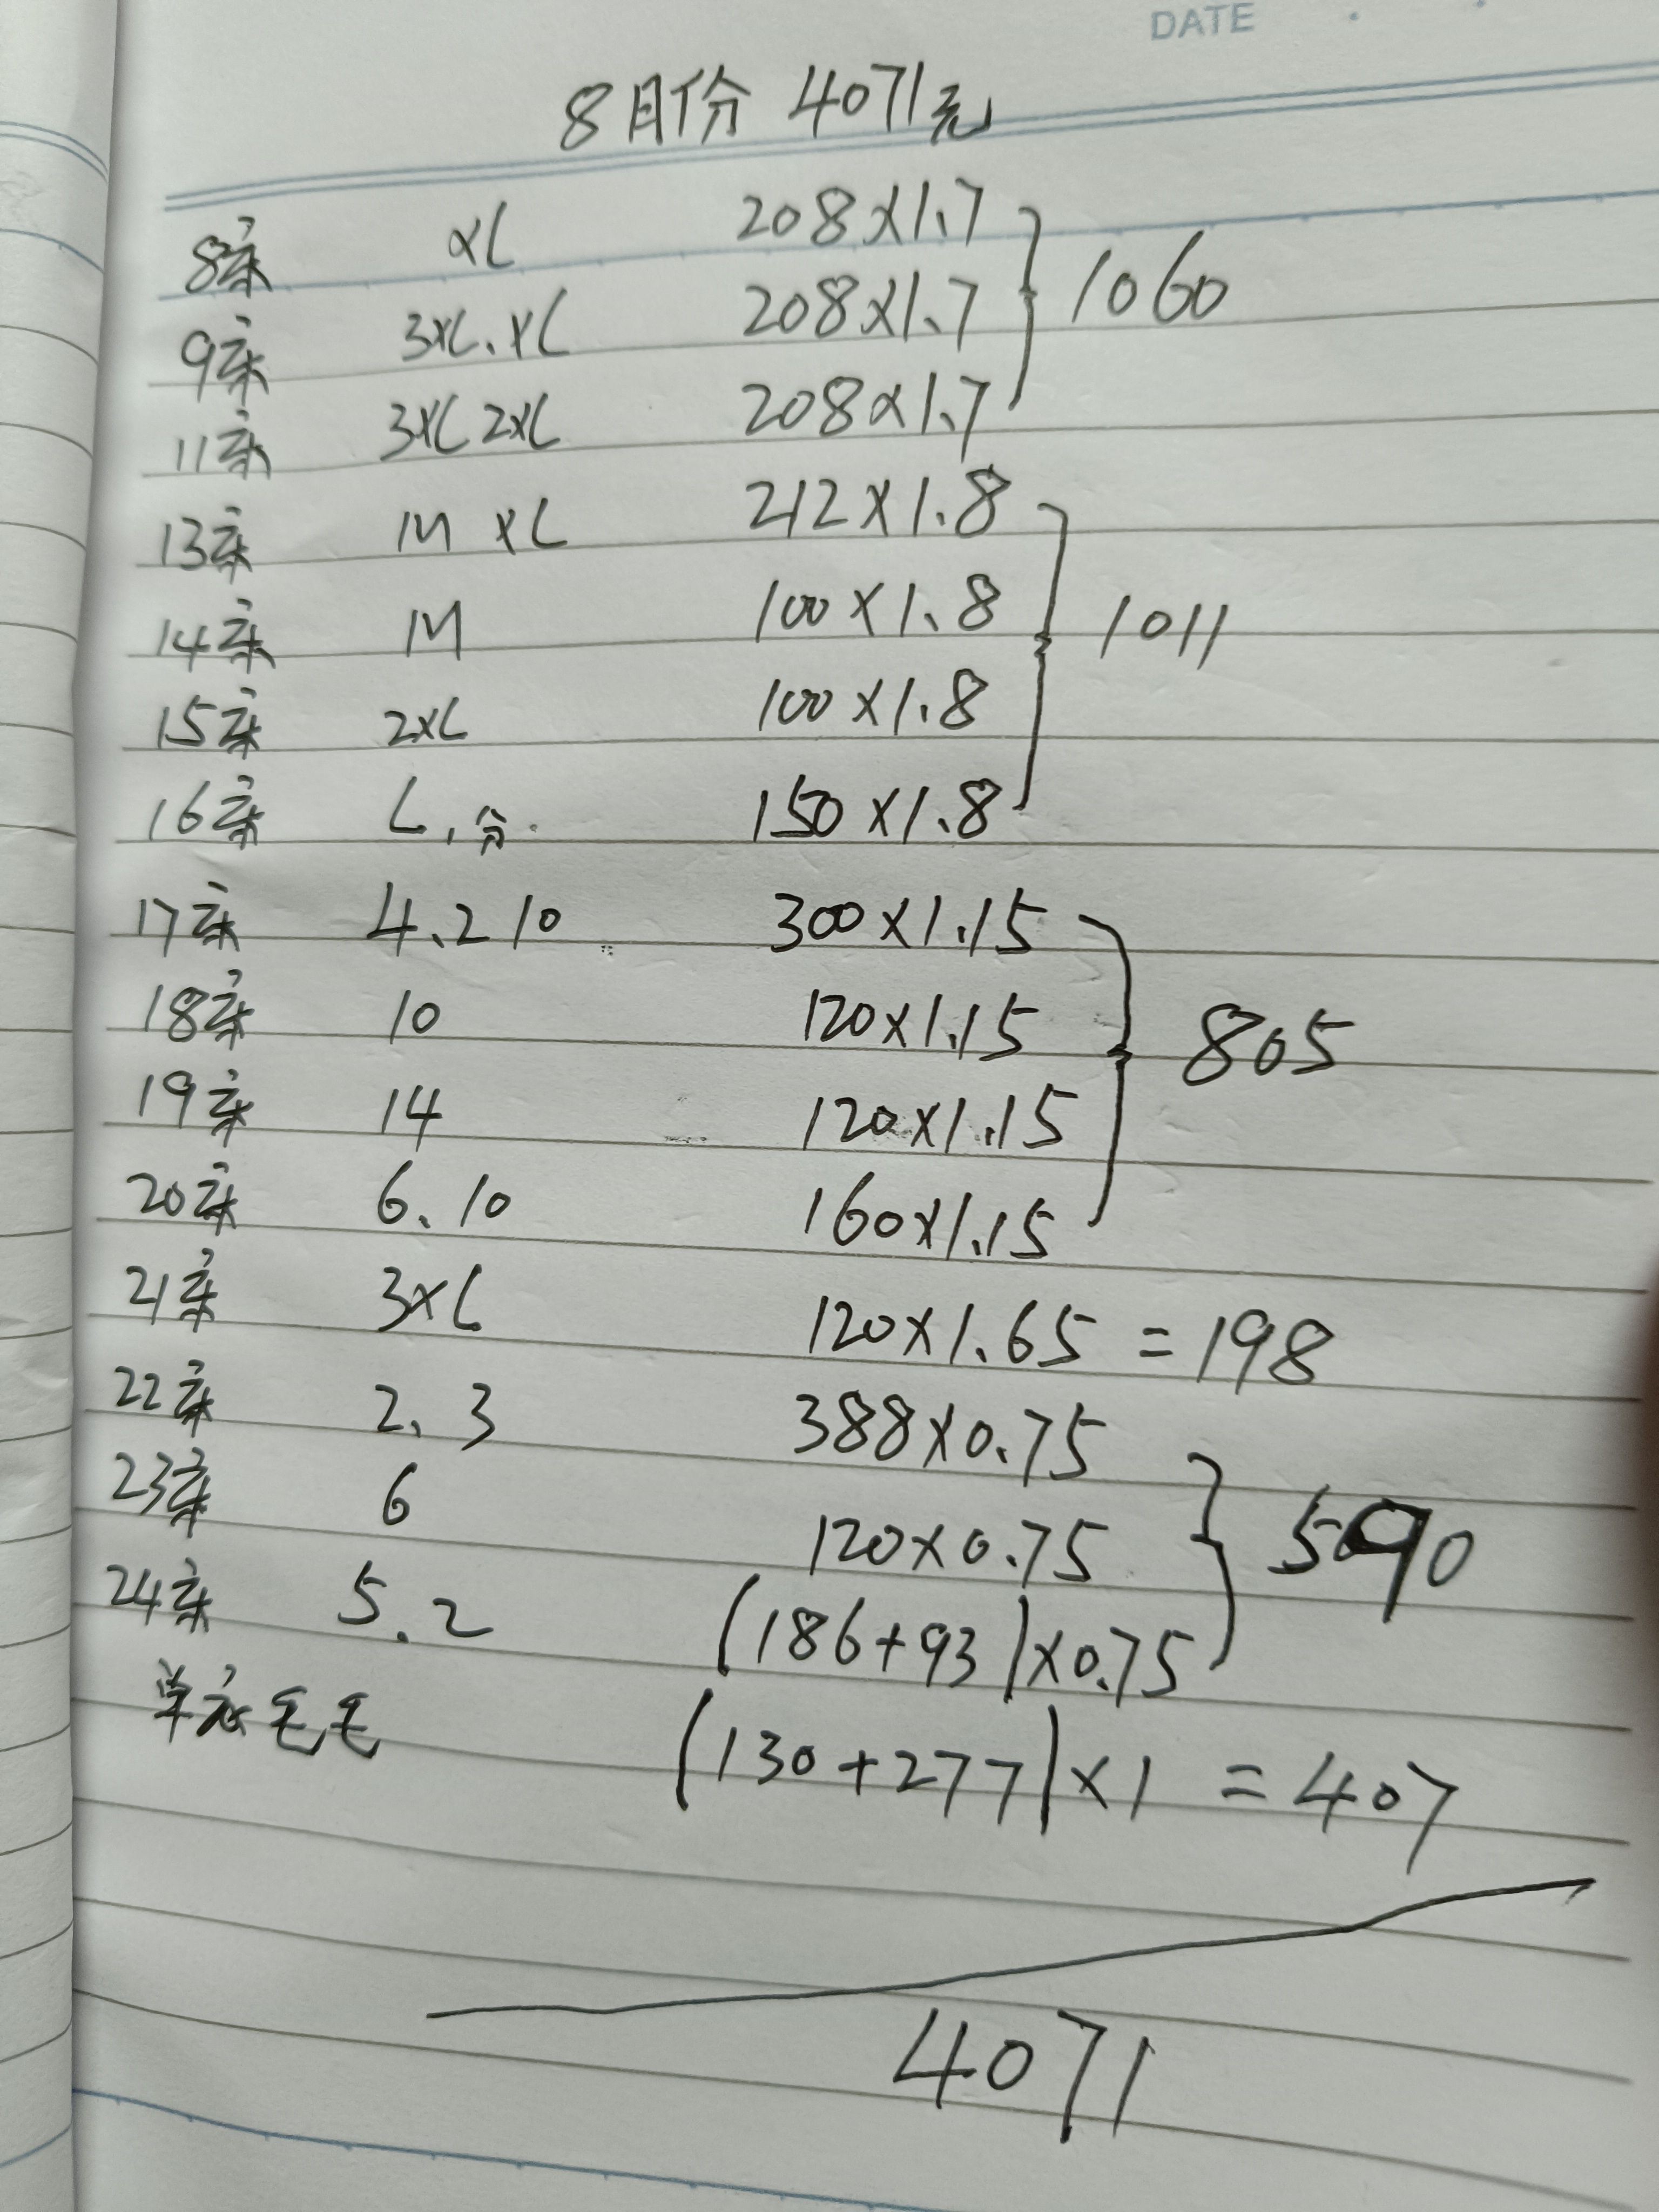 DATE
8月份 4071元
8床 XL 208×1.7
9床 3XL、XL 208×1.7 } 1060
11床 3XL 2XL 208×1.7
13床 M XL 212×1.8
14床 M 100×1.8 } 1011
15床 2XL 100×1.8
16床 L, 分. 150×1.8
17床 4、2 10 300×1.15
18床 10 120×1.15 } 805
19床 14 120×1.15
20床 6、10 160×1.15
21床 3XL 120×1.65 = 198
22床 2、3 388×0.75
23床 6 120×0.75 } 590
24床 5.2 (186+93)×0.75
单衣毛毛 (130+277)×1 = 407
4071